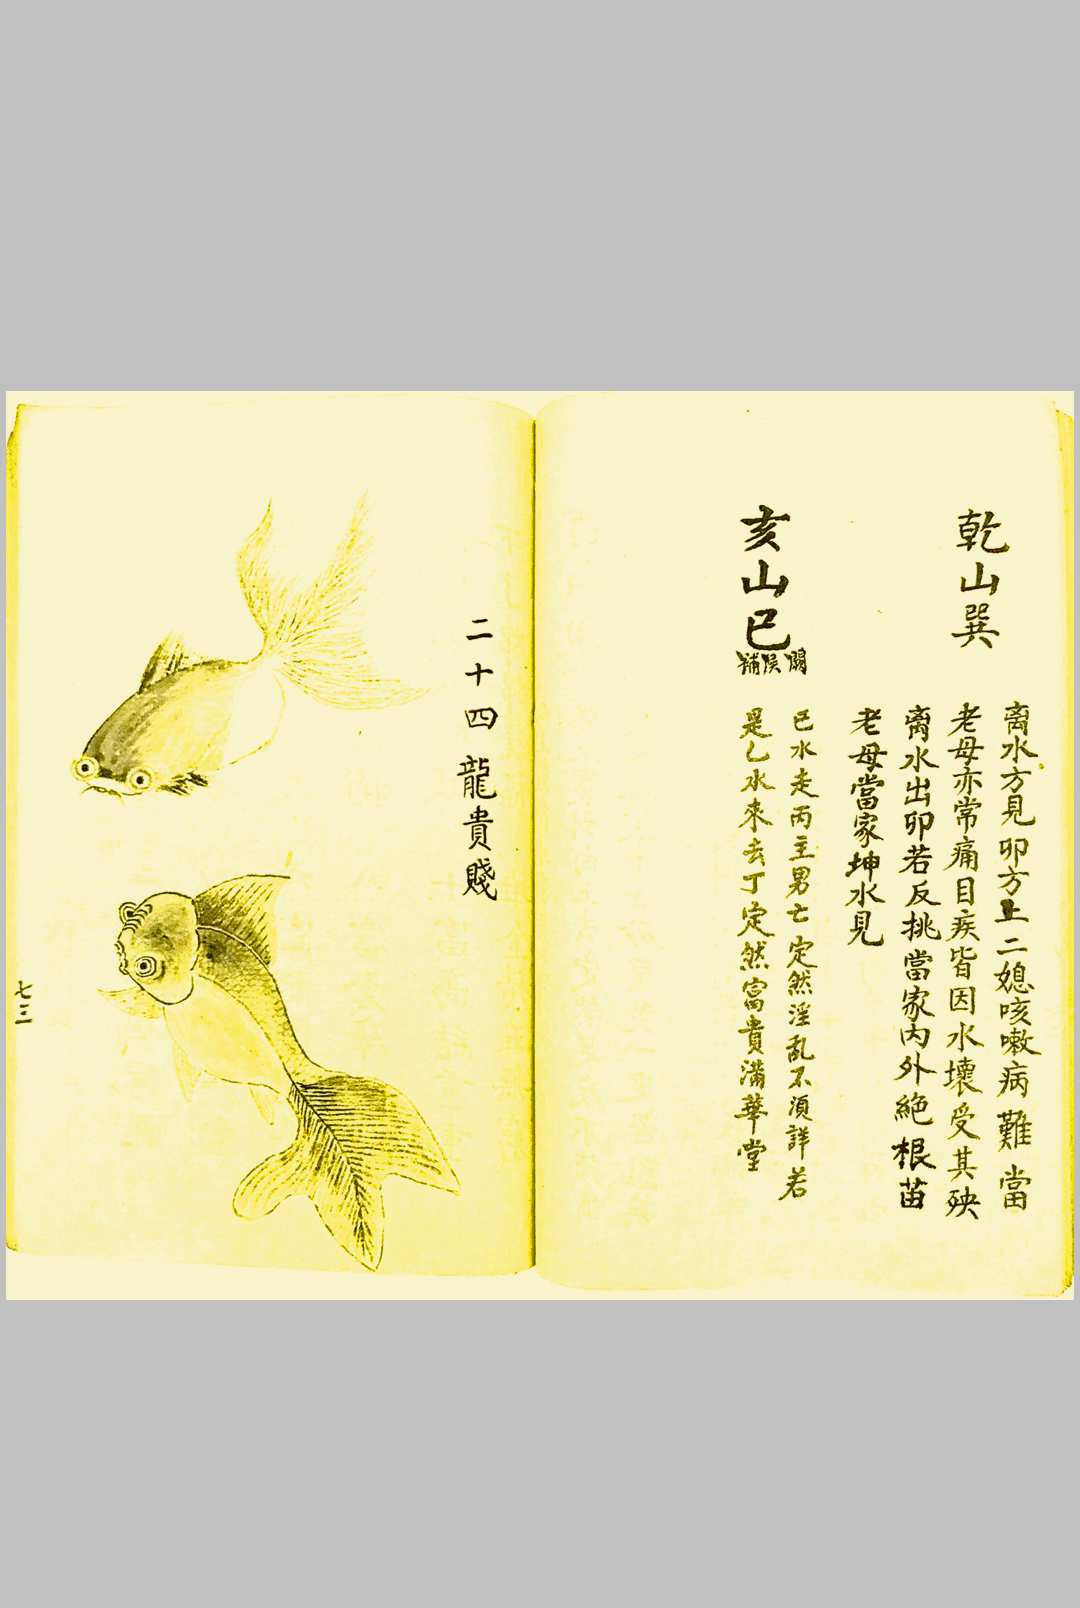 乾山巽
离水方見卯方上二媳咳嗽病難當
老母亦常痛目疾皆因水壞受其殃
离水出卯若反挑當家內外絶根苗
老母當家坤水見
亥山巳
關俟補
巳水走丙主男亡定然淫乱不須詳若
是乙水來去丁定然富貴滿華堂
二十四龍貴賤
七三